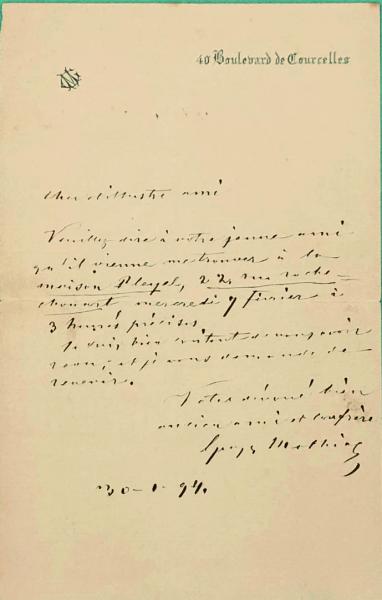 40 Boulevard de Courcelles
GM
Cher et illustre ami
Veuillez dire à votre jeune ami
qu'il vienne me trouver à la
maison Pleyel, 22, rue roche-
chouart mercredi 7 février à
3 heures précises.
Je suis bien content de vous avoir
revu, et je vous demande de
revenir.
Votre dévoué bien
ancien ami et confrère
Mathias
30-1-94.